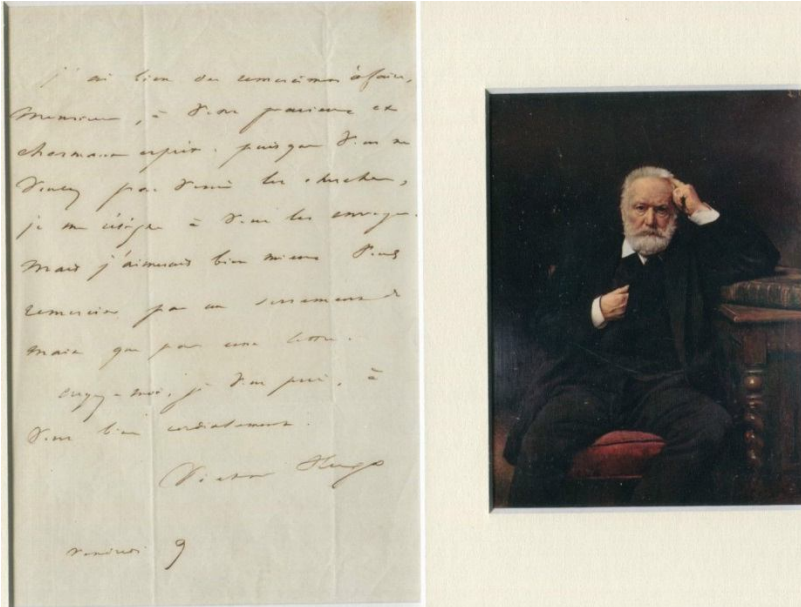 j'ai bien des remercîmens à faire,
Monsieur, à votre gracieux et
charmant esprit. puisque vous ne
voulez pas venir les chercher,
je me résigne à vous les envoyer.
Mais j'aimerais bien mieux vous
remercier par un serrement de
main que par une lettre.
croyez-moi, je vous prie, à
vous bien cordialement.
Victor Hugo
vendredi 9